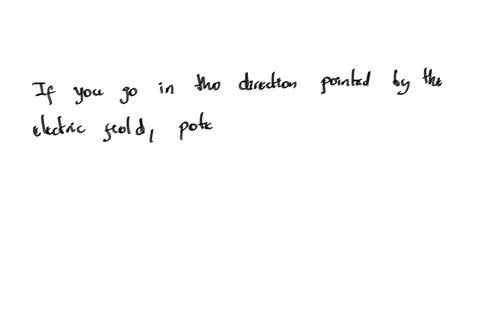 If you go in the direction pointed by the
electric field, pote